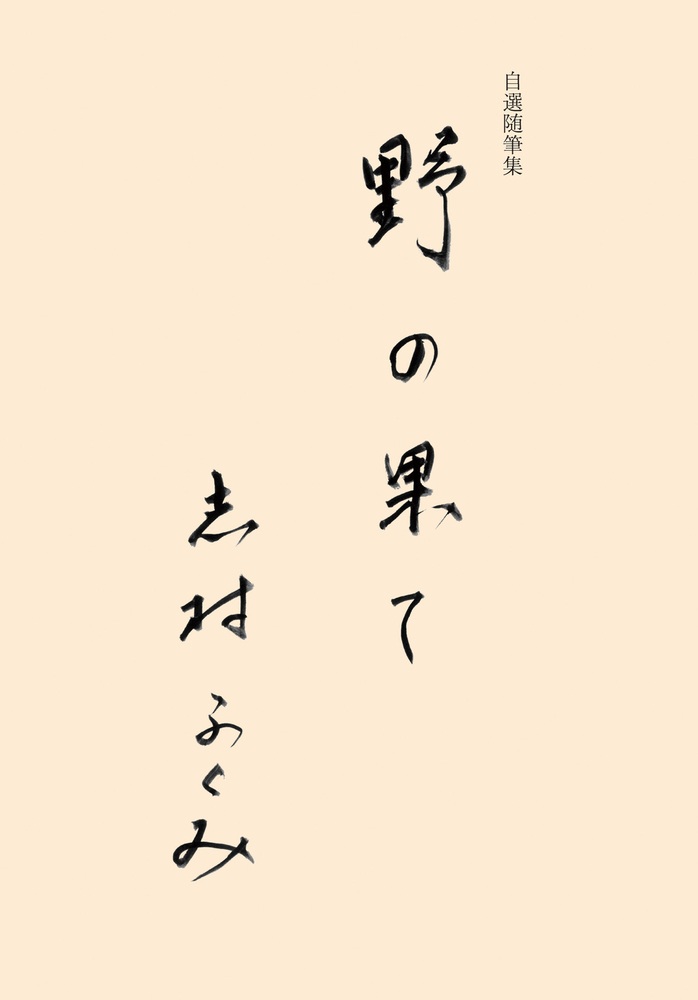 自選随筆集
野の果て
志村ふくみ